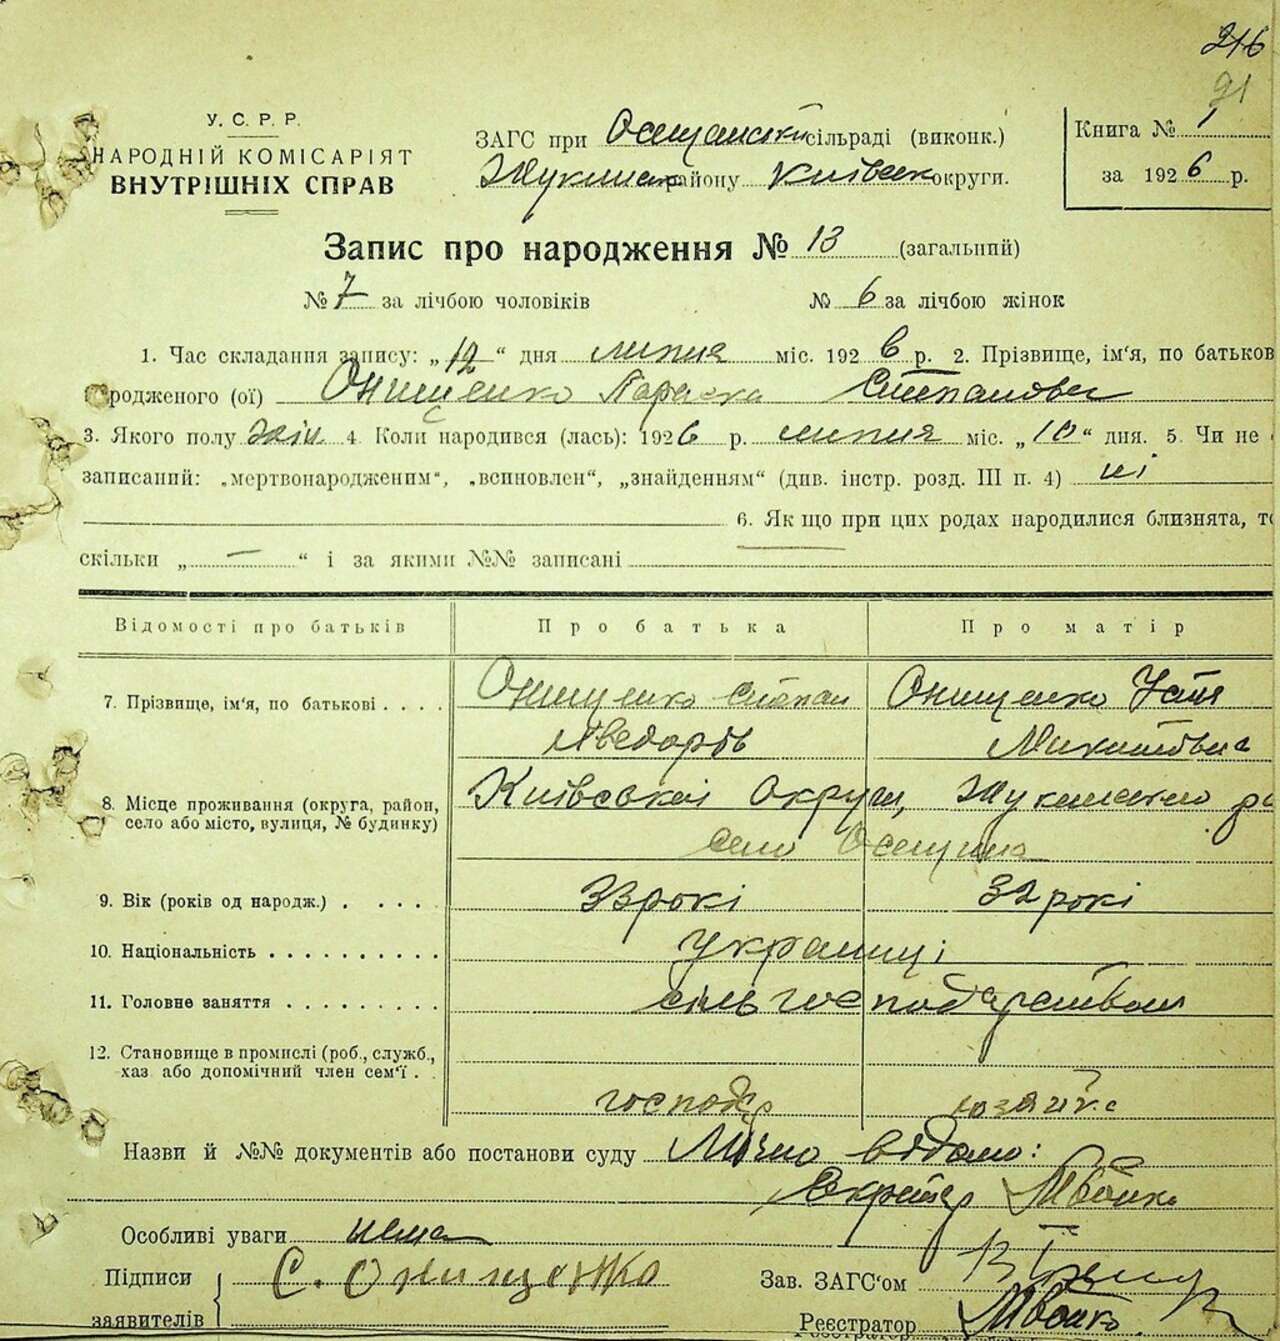 216
91
У. С. Р. Р.
НАРОДНІЙ КОМІСАРІЯТ
ВНУТРІШНІХ СПРАВ
ЗАГС при Осещанській сільраді (виконк.)
району Київськ округи.
Книга № 1
за 1926 р.
Запис про народження № 13 (загальний)
№ 7 за лічбою чоловіків № 6 за лічбою жінок
1. Час складання запису: „12“ дня липня міс. 1926 р. 2. Прізвище, ім'я, по батьков
родженого (ої) Онищенко Параска Степановна
3. Якого полу жін. 4. Коли народився (лась): 1926 р. липня міс. „10“ дня. 5. Чи не
записаний: „мертвонародженим“, „всиновлен“, „знайденням“ (див. інстр. розд. III п. 4) ні
6. Як що при цих родах народилися близнята, то
скільки „ — “ і за якими №№ записані
Відомості про батьків Про батька Про матір
7. Прізвище, ім'я, по батькові . . . . Онищенко Степан Онищенко Устя
Микитовна
8. Місце проживання (округа, район, Київської округи,
село або місто, вулиця, № будинку) село Осещина
9. Вік (років од народж.) . . . . . 33 рокі 32 рокі
10. Національність . . . . . . . . . . українці
11. Головне заняття . . . . . . . . . сільгосподарством
12. Становище в промислі (роб., служб.,
хаз або допомічний член сем'ї . . господар хозяйка
Назви й №№ документів або постанови суду Лічно відомо:
Секретар МБойко
Особливі уваги нема
Підписи С. Онищенко Зав. ЗАГС'ом
заявителів Реєстратор МБойко